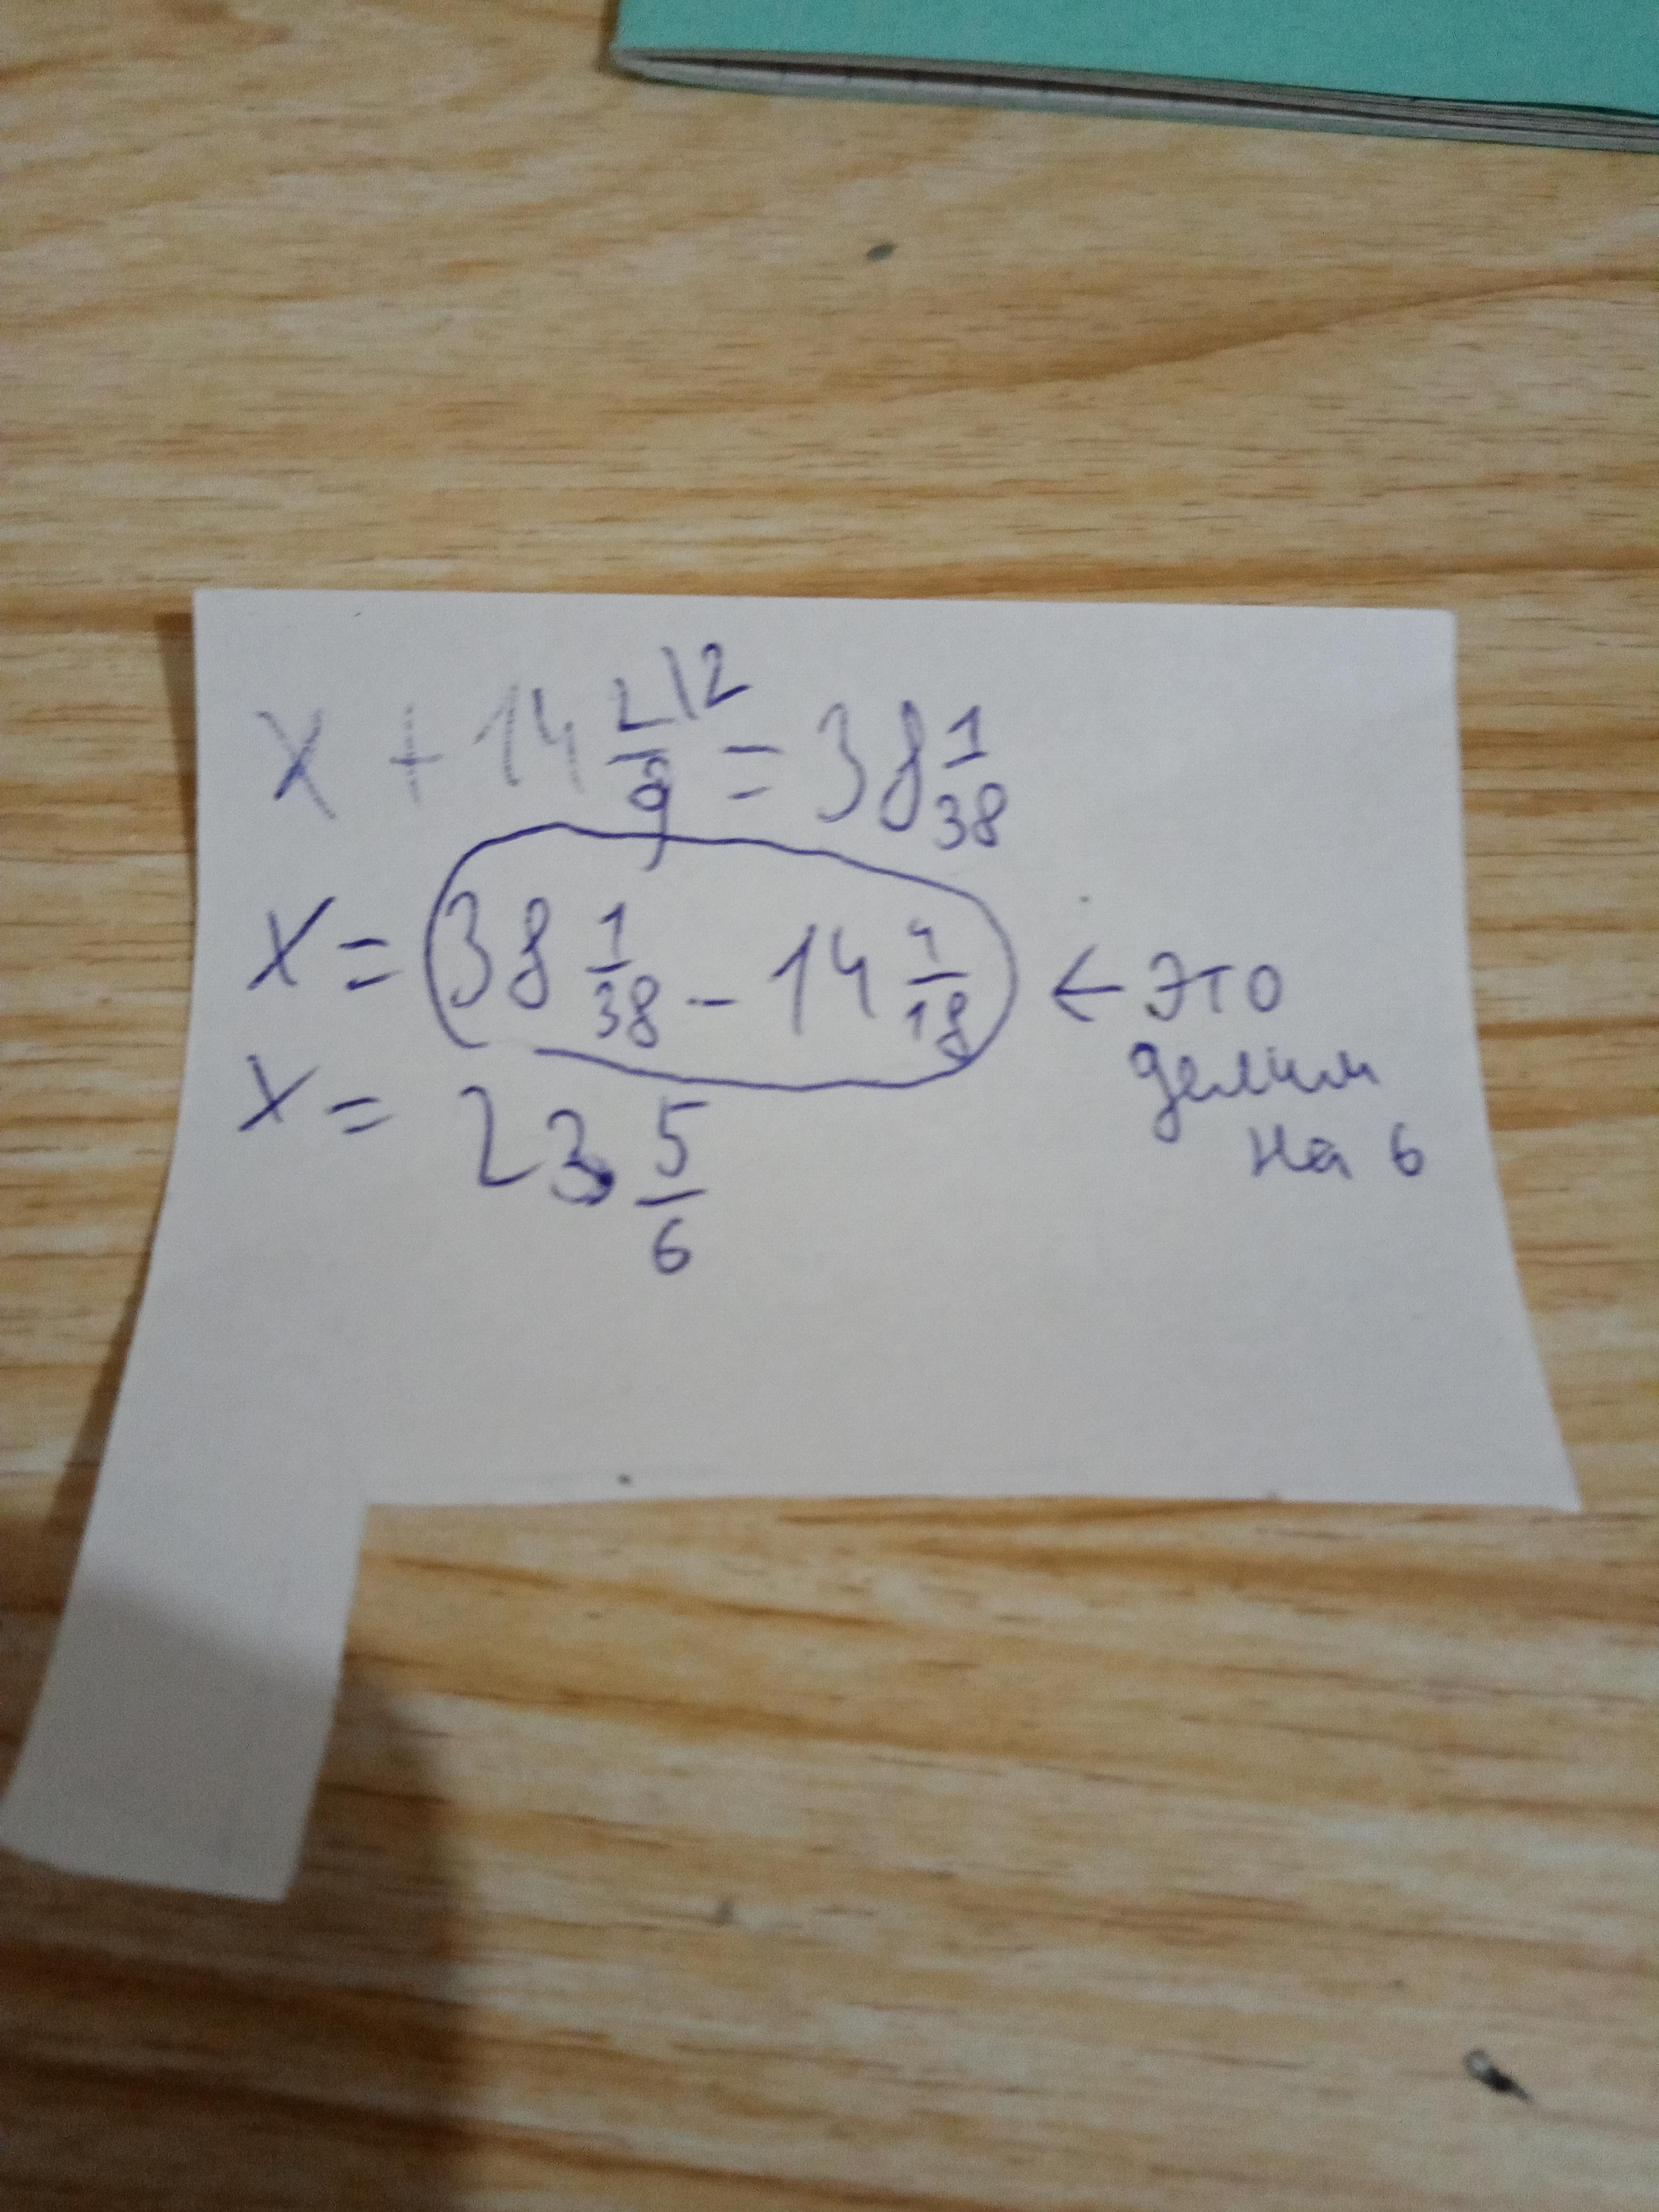 x + 14 2/9 \2 = 38 1/38
x = 38 1/38 - 14 4/18 ← это
делим
на 6
x = 23 5/6